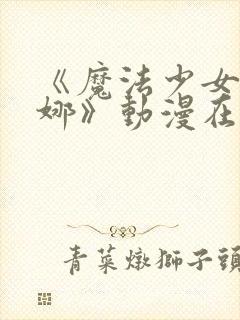 《魔法少女
娜》動漫在
青菜燉獅子頭